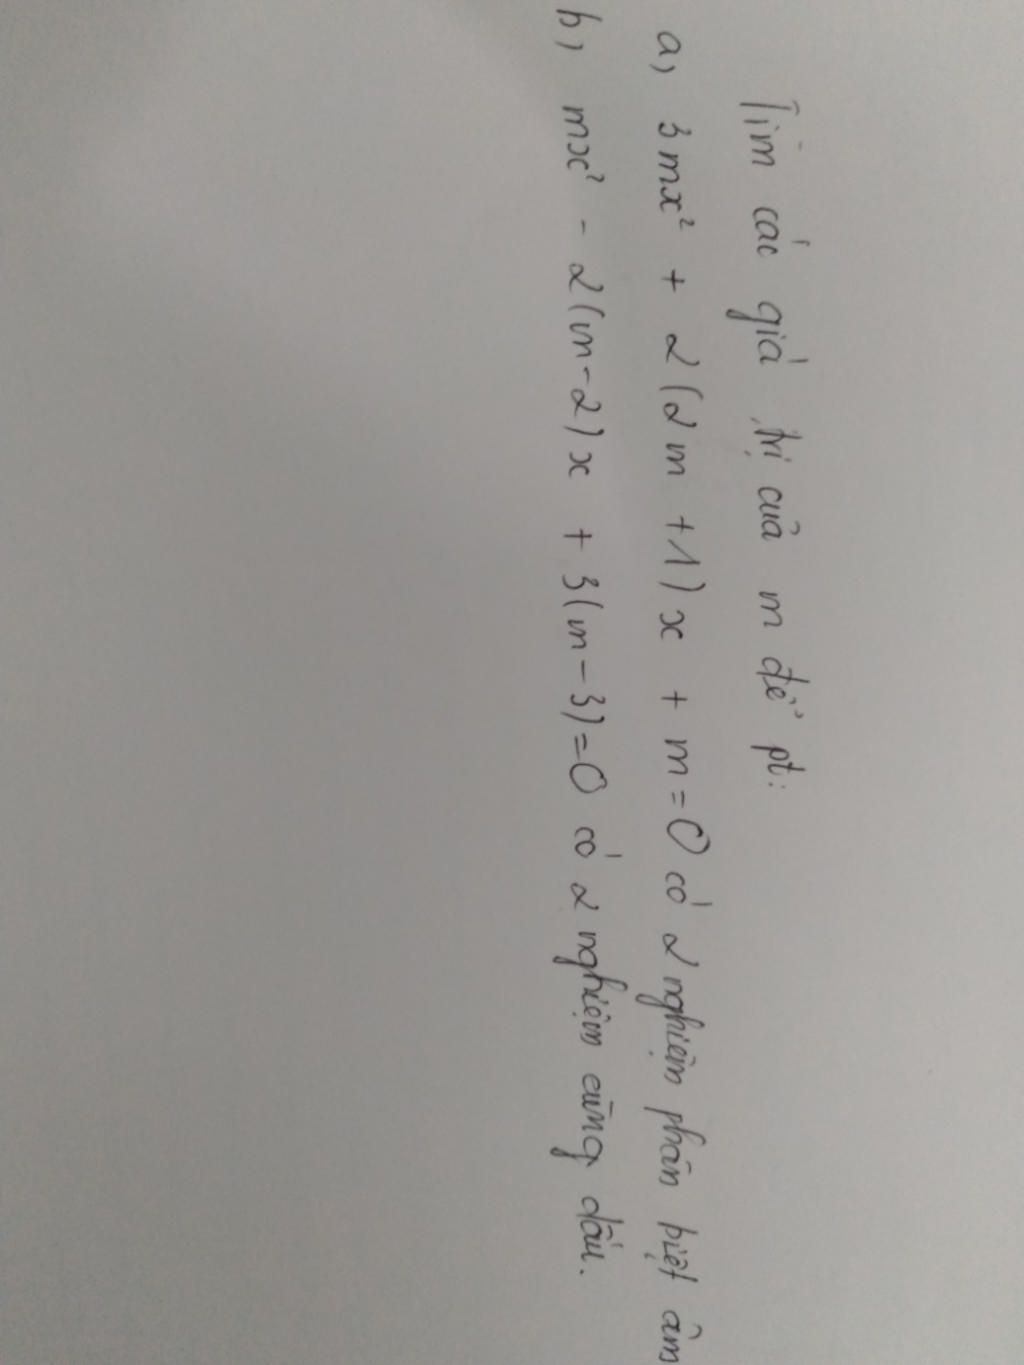 Tìm các giá trị của m để pt:
a, 3mx² + 2(2m+1)x + m=0 có 2 nghiệm phân biệt âm
b, mx² - 2(m-2)x + 3(m-3)=0 có 2 nghiệm cùng dấu.